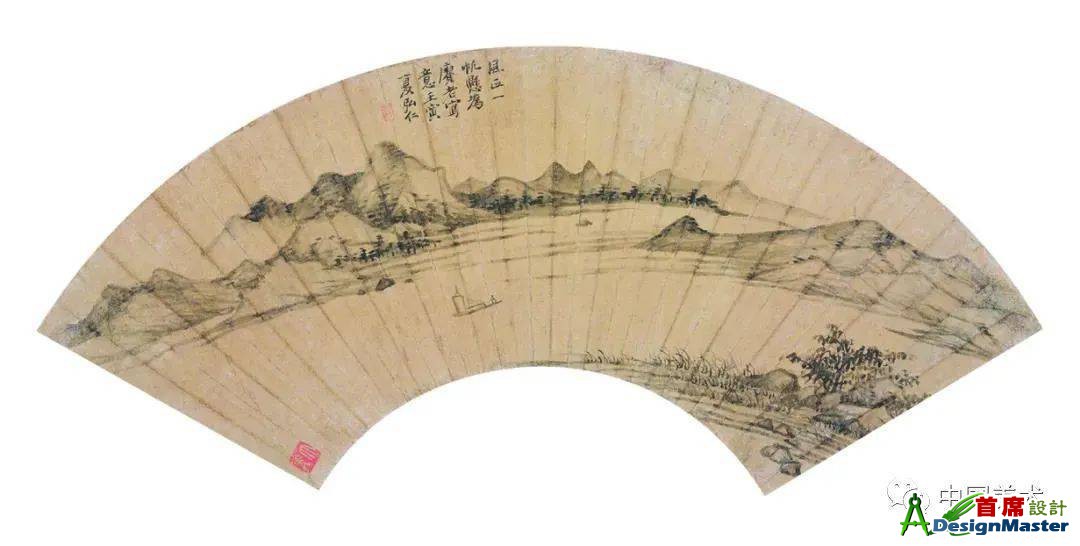 風正一
帆懸為
賡老寫
意壬寅
夏弘仁
中国美术
首席設計
DesignMaster